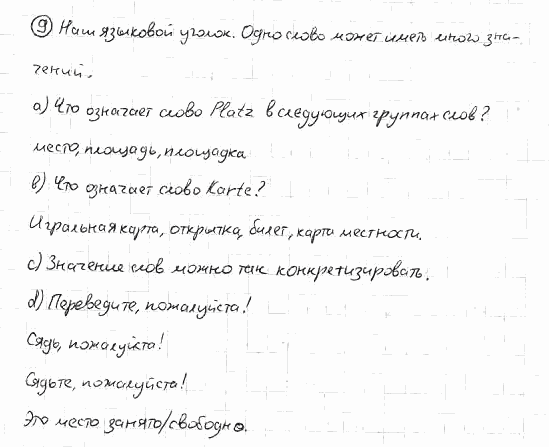 9 Наш языковой уголок. Одно слово может иметь много зна-
чений.
а) Что означает слово Platz в следующих группах слов?
место, площадь, площадка
в) Что означает слово Karte?
Игральная карта, открытка, билет, карта местности.
с) Значение слов можно так конкретизировать.
d) Переведите, пожалуйста!
Сядь, пожалуйста!
Сядьте, пожалуйста!
Это место занято/свободно.